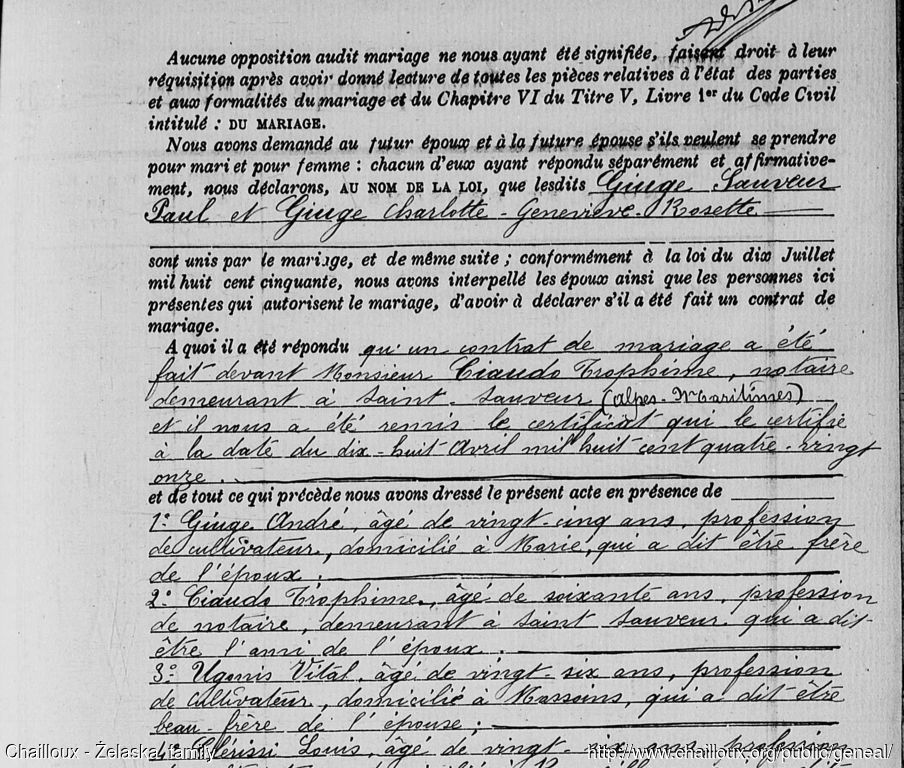 Aucune opposition audit mariage ne nous ayant été signifiée, faisant droit à leur
réquisition après avoir donné lecture de toutes les pièces relatives à l'état des parties
et aux formalités du mariage et du Chapitre VI du Titre V, Livre 1er du Code Civil
intitulé : DU MARIAGE.
Nous avons demandé au futur époux et à la future épouse s'ils veulent se prendre
pour mari et pour femme : chacun d'eux ayant répondu séparément et affirmative-
ment, nous déclarons, AU NOM DE LA LOI, que lesdits Giuge Sauveur
Paul et Giuge Charlotte - Geneviève - Rosette
sont unis par le mariage, et de même suite ; conformément à la loi du dix Juillet
mil huit cent cinquante, nous avons interpellé les époux ainsi que les personnes ici
présentes qui autorisent le mariage, d'avoir à déclarer s'il a été fait un contrat de
mariage.
A quoi il a été répondu qu'un contrat de mariage a été
fait devant Monsieur Ciaudo Trophime, notaire
demeurant à Saint-Sauveur (Alpes-Maritimes)
et il nous a été remis le certificat qui le certifie
à la date du dix-huit Avril mil huit cent quatre-vingt
onze.
et de tout ce qui précède nous avons dressé le présent acte en présence de
1° Giuge André, âgé de vingt-cinq ans, profession
de cultivateur, domicilié à Marie, qui a dit être frère
de l'époux.
2° Ciaudo Trophime, âgé de soixante ans, profession
de notaire, demeurant à Saint Sauveur qui a dit
être l'ami de l'époux.
3° Ugonis Vital, âgé de vingt-six ans, profession
de cultivateur, domicilié à Massoins, qui a dit être
beau-frère de l'épouse ;
4° Clerissi Louis, âgé de vingt-six ans, profession
Chailloux - Żelaska family
http://www.chailloux.org/public/geneal/